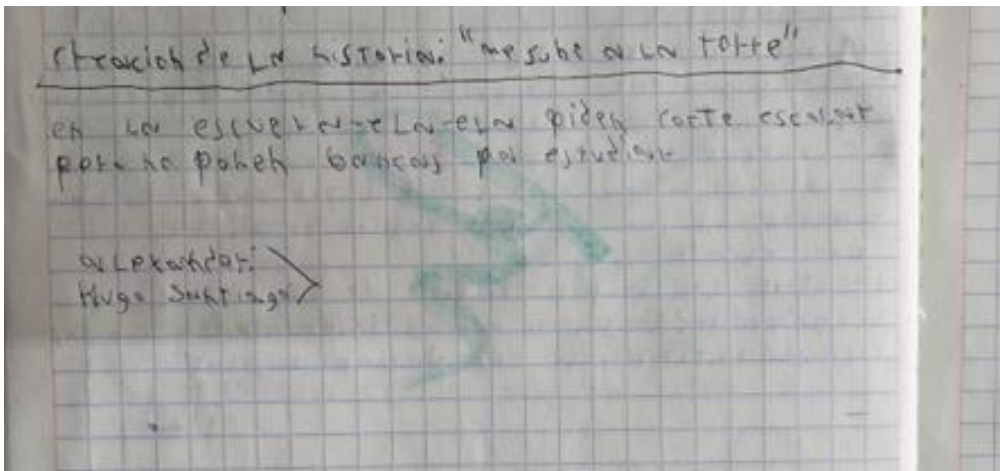 creacion de La historia: "me subi a La torre"
en La escuela-eLa-eLa piden corte escolar
pero no ponen bancas pa estudiar
aLexander:
Hugo Santiago